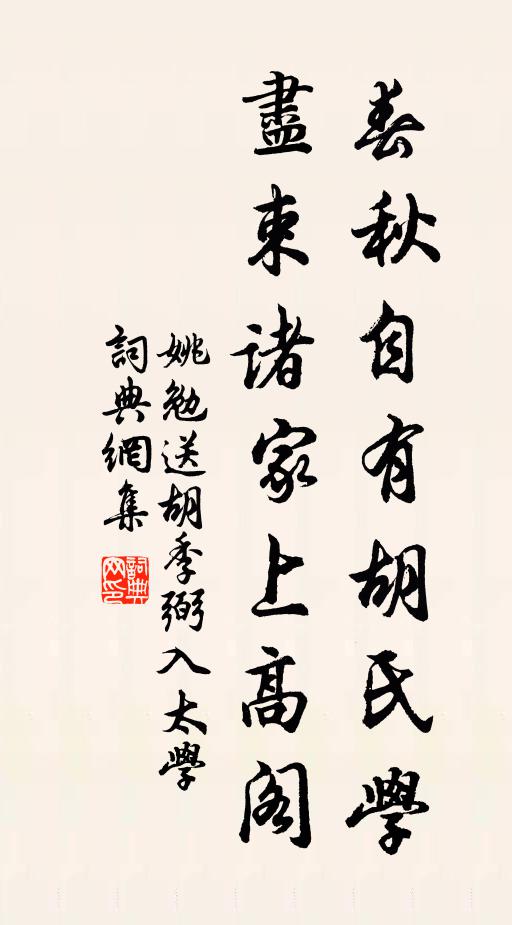 春秋自有胡氏學
盡束諸家上高閣
姚勉送胡季弼入太學
詞典網集
詞典网印